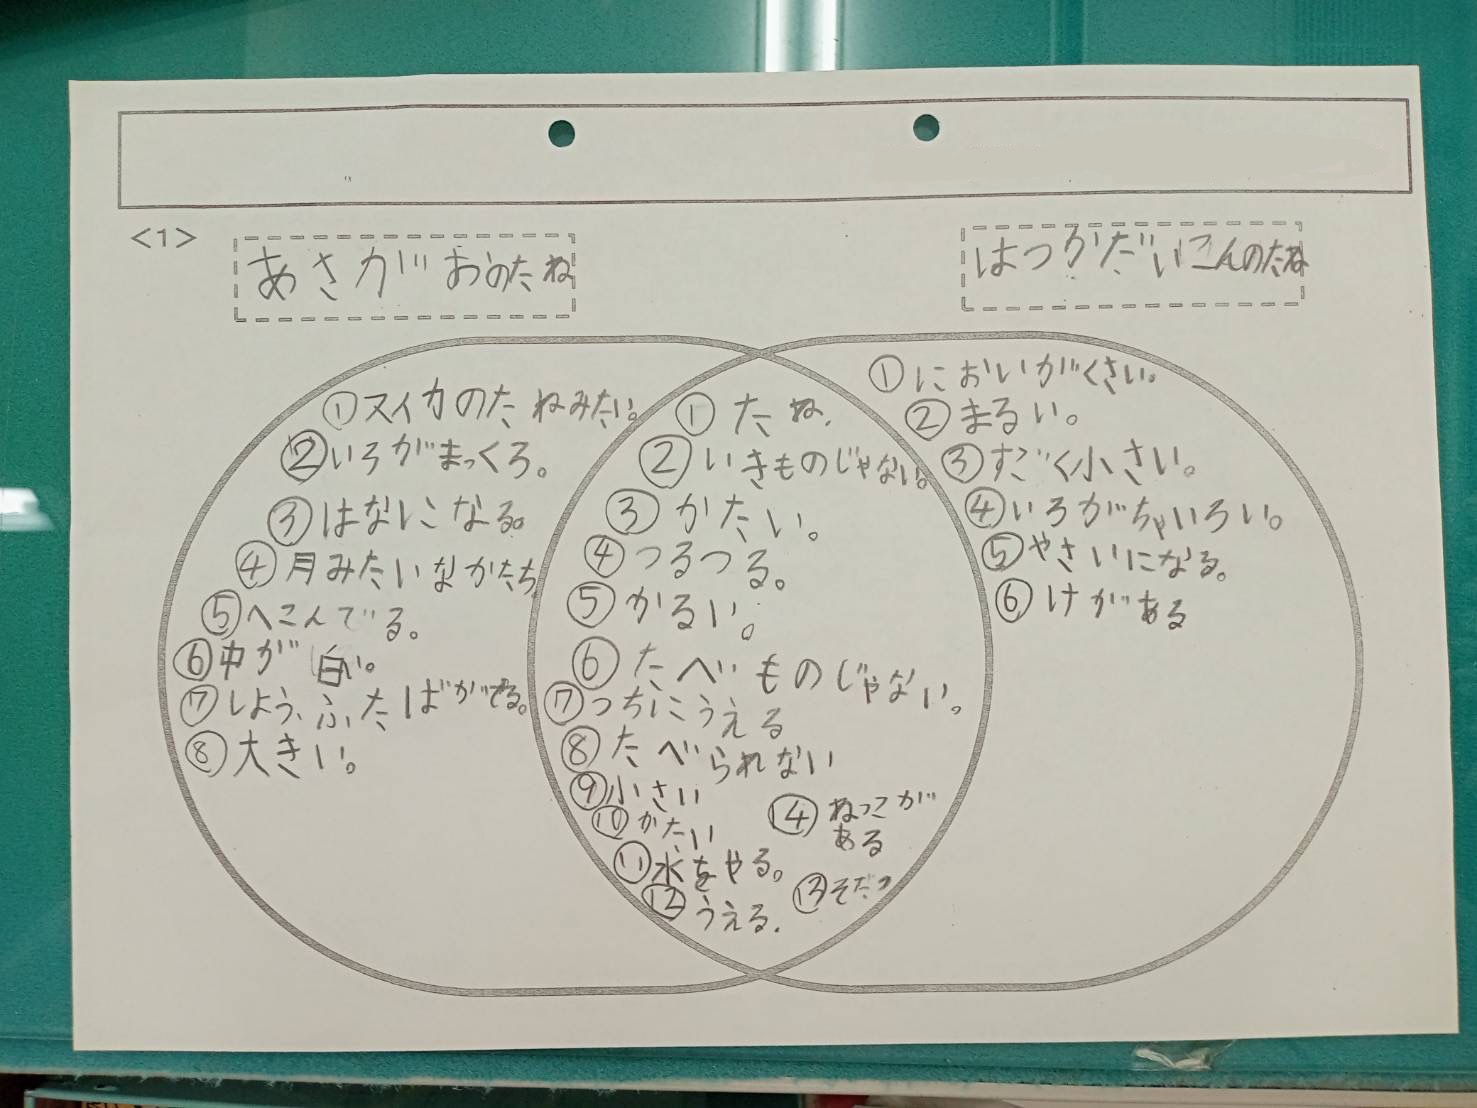 <1>
あさがおのたね
はつかだいこんのたね
①スイカのたねみたい。
②いろがまっくろ。
③はなになる。
④月みたいなかたち
⑤へこんでいる。
⑥中が白い。
⑦しよう、ふたばがでる。
⑧大きい。
①たね.
②いきものじゃない。
③かたい。
④つるつる。
⑤かるい。
⑥たべものじゃない。
⑦つちにうえる
⑧たべられない
⑨小さい
⑩かたい
⑪水をやる。
⑫うえる.
⑬そだつ
⑭ねっこが
ある
①においがくさい。
②まるい。
③すごく小さい。
④いろがちゃいろい。
⑤やさいになる。
⑥けがある